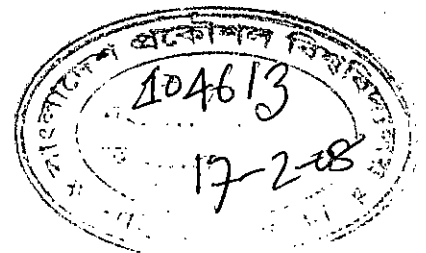 বাংলাদেশ প্রকৌশল বিশ্ববিদ্যালয়
104613
17-2-08